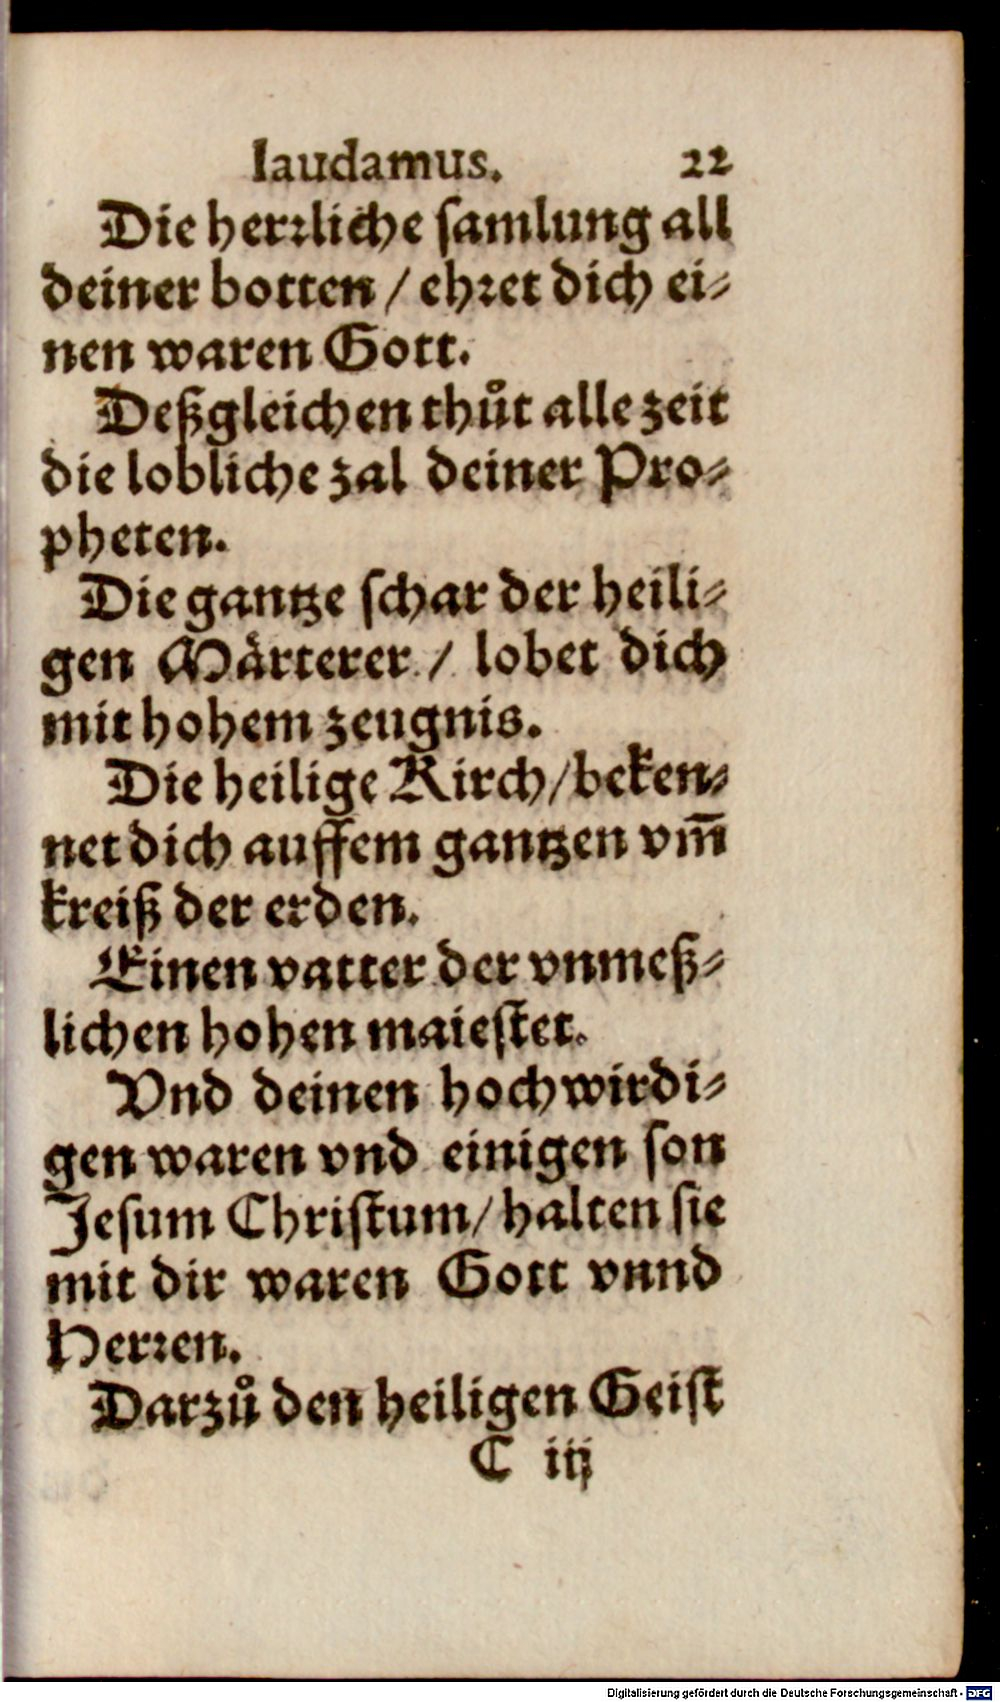 laudamus. 22
Die herꝛliche ſamlung all
deiner botten / ehꝛet dich ei⸗
nen waren Gott.
Deßgleichen thuͦt alle zeit
die lobliche zal deiner Pro⸗
pheten.
Die gantze ſchar der heili⸗
gen Maͤrterer / lobet dich
mit hohem zeugnis.
Die heilige Kirch / beken⸗
net dich auffem gantzen vm̅
kreiß der erden.
Einen vatter der vnmeß⸗
lichen hohen maieſtet.
Vnd deinen hochwirdi⸗
gen waren vnd einigen ſon
Jeſum Chriſtum / halten ſie
mit dir waren Gott vnnd
Herꝛen.
Darzuͦ den heiligen Geiſt
C iij
Digitalisierung gefördert durch die Deutsche Forschungsgemeinschaft - DFG